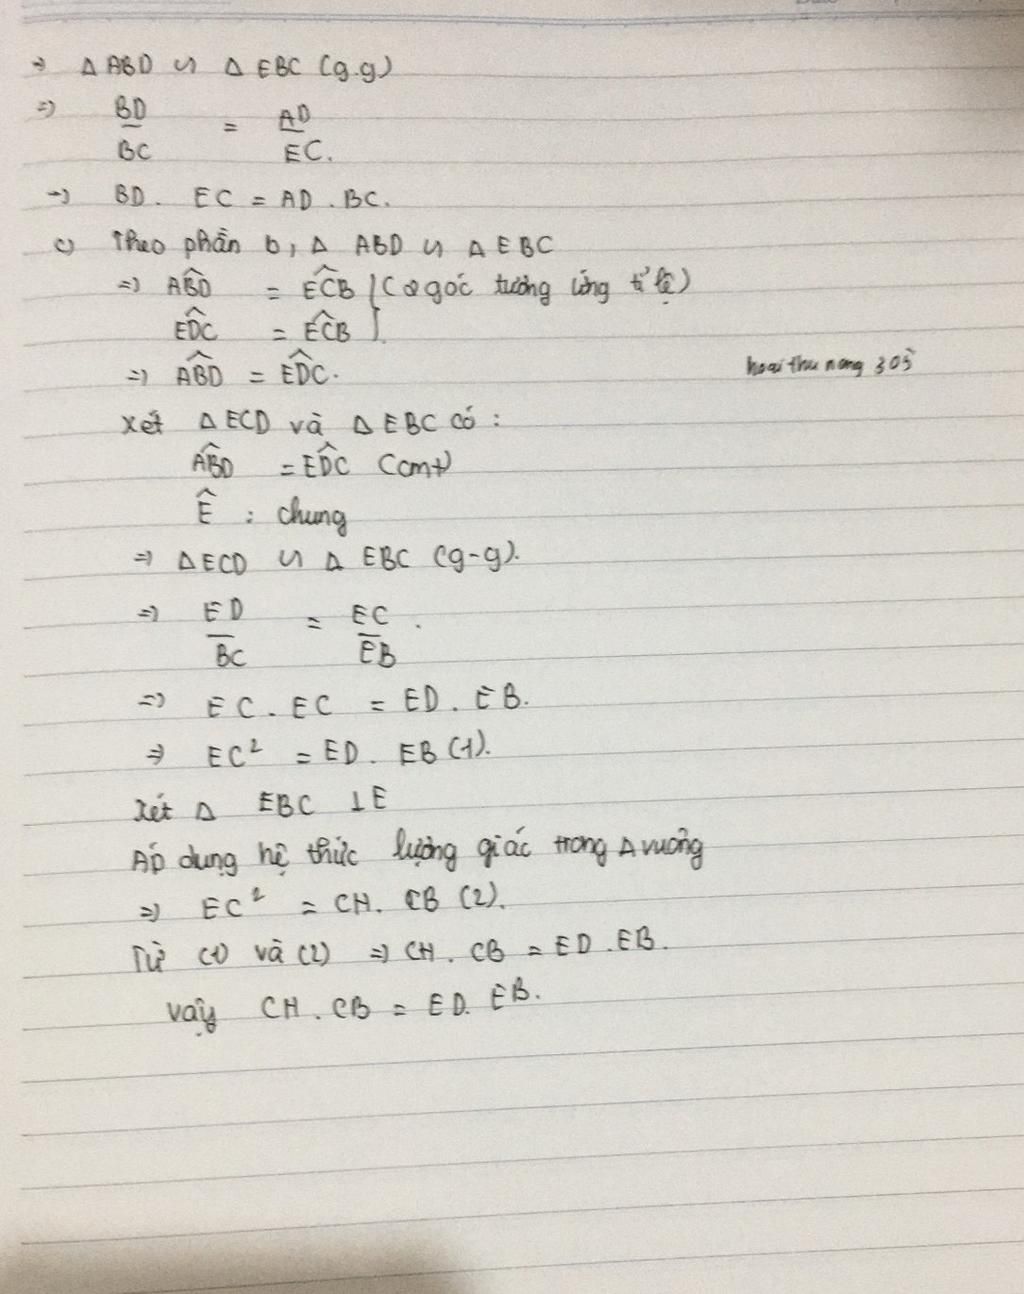 ⇒ Δ ABD ᔕ Δ EBC (g.g)
⇒ BD/BC = AD/EC.
⇒ BD. EC = AD . BC.
c) Theo phần b, Δ ABD ᔕ Δ EBC
⇒ ABD̂ = EĈB (2 góc tương ứng tỉ lệ)
ED̂C = EĈB
⇒ AB̂D = ED̂C.
hoai thu nang 305
Xét Δ ECD và Δ EBC có :
AB̂D = ED̂C (cmt)
Ê : chung
⇒ Δ ECD ᔕ Δ EBC (g-g).
⇒ ED/BC = EC/EB.
⇒ EC . EC = ED . EB.
⇒ EC² = ED . EB (1).
Xét Δ EBC ⊥ E
Áp dụng hệ thức lượng giác trong Δ vuông
⇒ EC² = CH. CB (2).
Từ (1) và (2) ⇒ CH . CB = ED . EB.
vậy CH . CB = ED. EB.